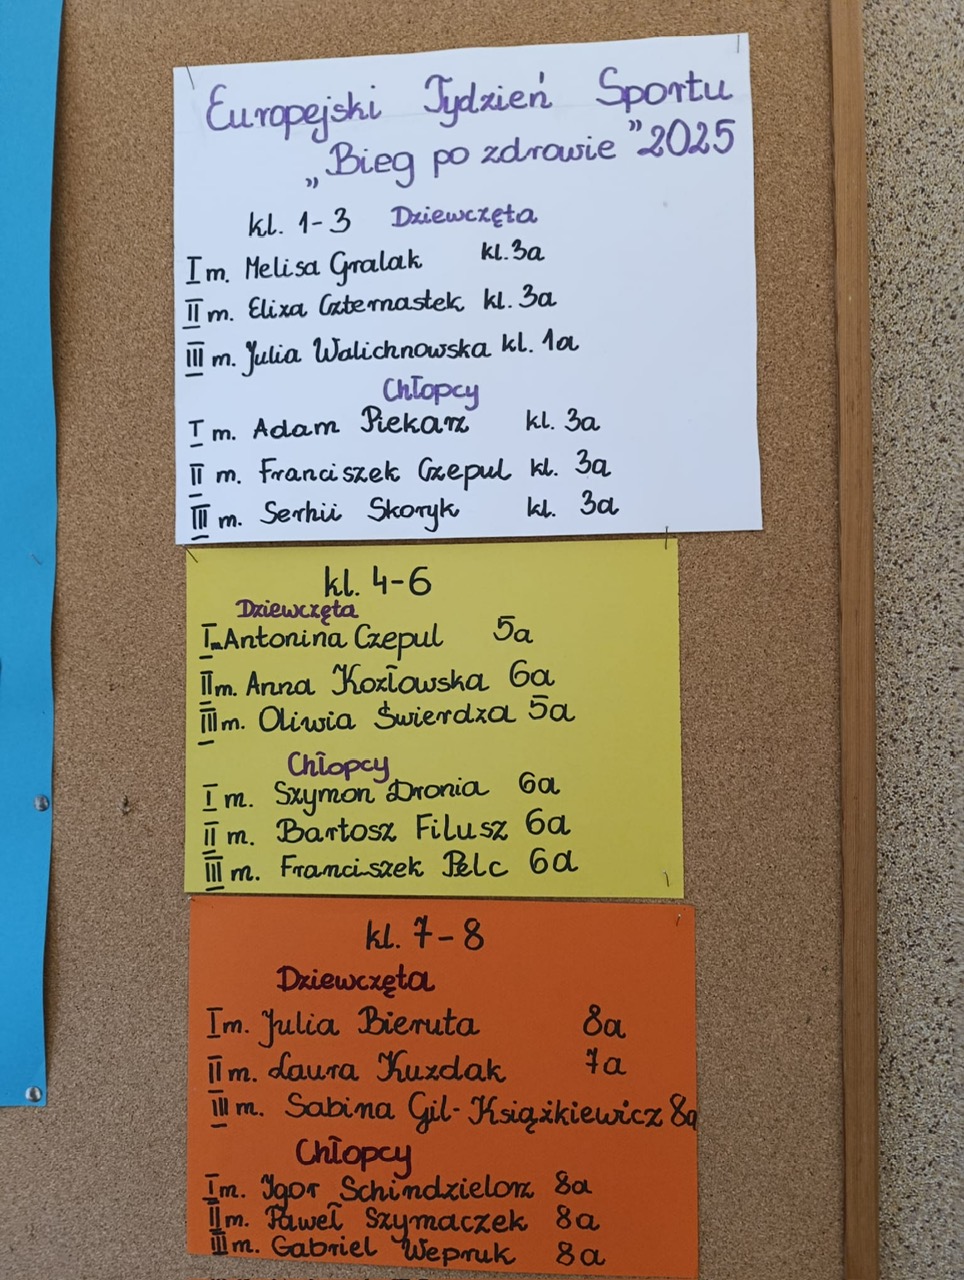 Europejski Tydzień Sportu
„Bieg po zdrowie” 2025
kl. 1-3 Dziewczęta
I m. Melisa Gralak kl. 3a
II m. Eliza Czternastek kl. 3a
III m. Julia Walichnowska kl. 1a
Chłopcy
I m. Adam Piekarz kl. 3a
II m. Franciszek Czepul kl. 3a
III m. Serhii Skoryk kl. 3a
kl. 4-6
Dziewczęta
I m. Antonina Czepul 5a
II m. Anna Kozłowska 6a
III m. Oliwia Świerdza 5a
Chłopcy
I m. Szymon Dronia 6a
II m. Bartosz Filusz 6a
III m. Franciszek Pelc 6a
kl. 7-8
Dziewczęta
I m. Julia Bieruta 8a
II m. Laura Kuzdak 7a
III m. Sabina Gil-Książkiewicz 8a
Chłopcy
I m. Igor Schindzielorz 8a
II m. Paweł Szymaczek 8a
III m. Gabriel Wepruk 8a